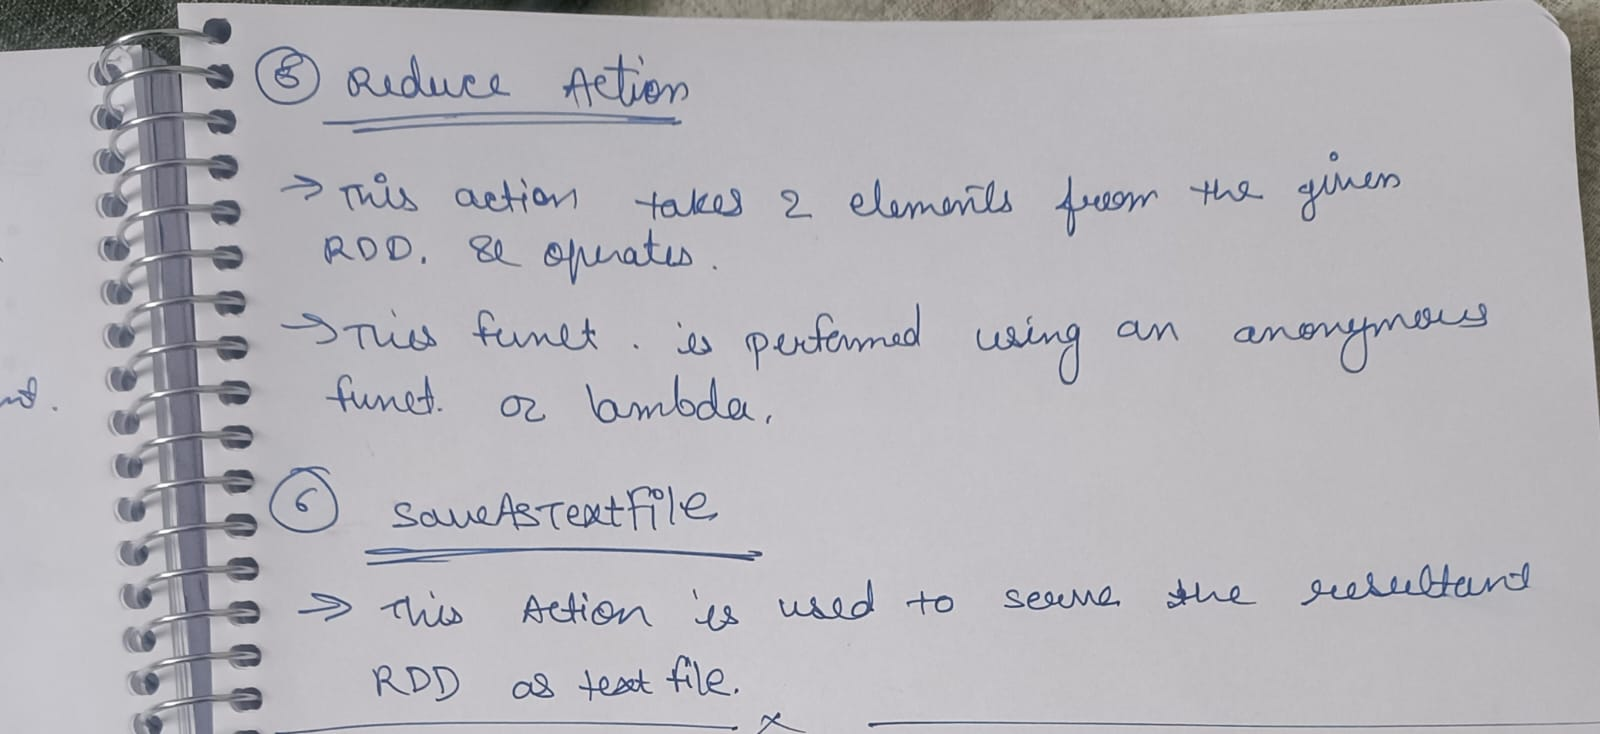 ⑤ Reduce Action
→ This action takes 2 elements from the given
RDD. & operates.
→ This funct. is performed using an anonymous
funct. or lambda.
⑥ saveAsTextFile
→ This Action is used to serve the resultant
RDD as text file.
x